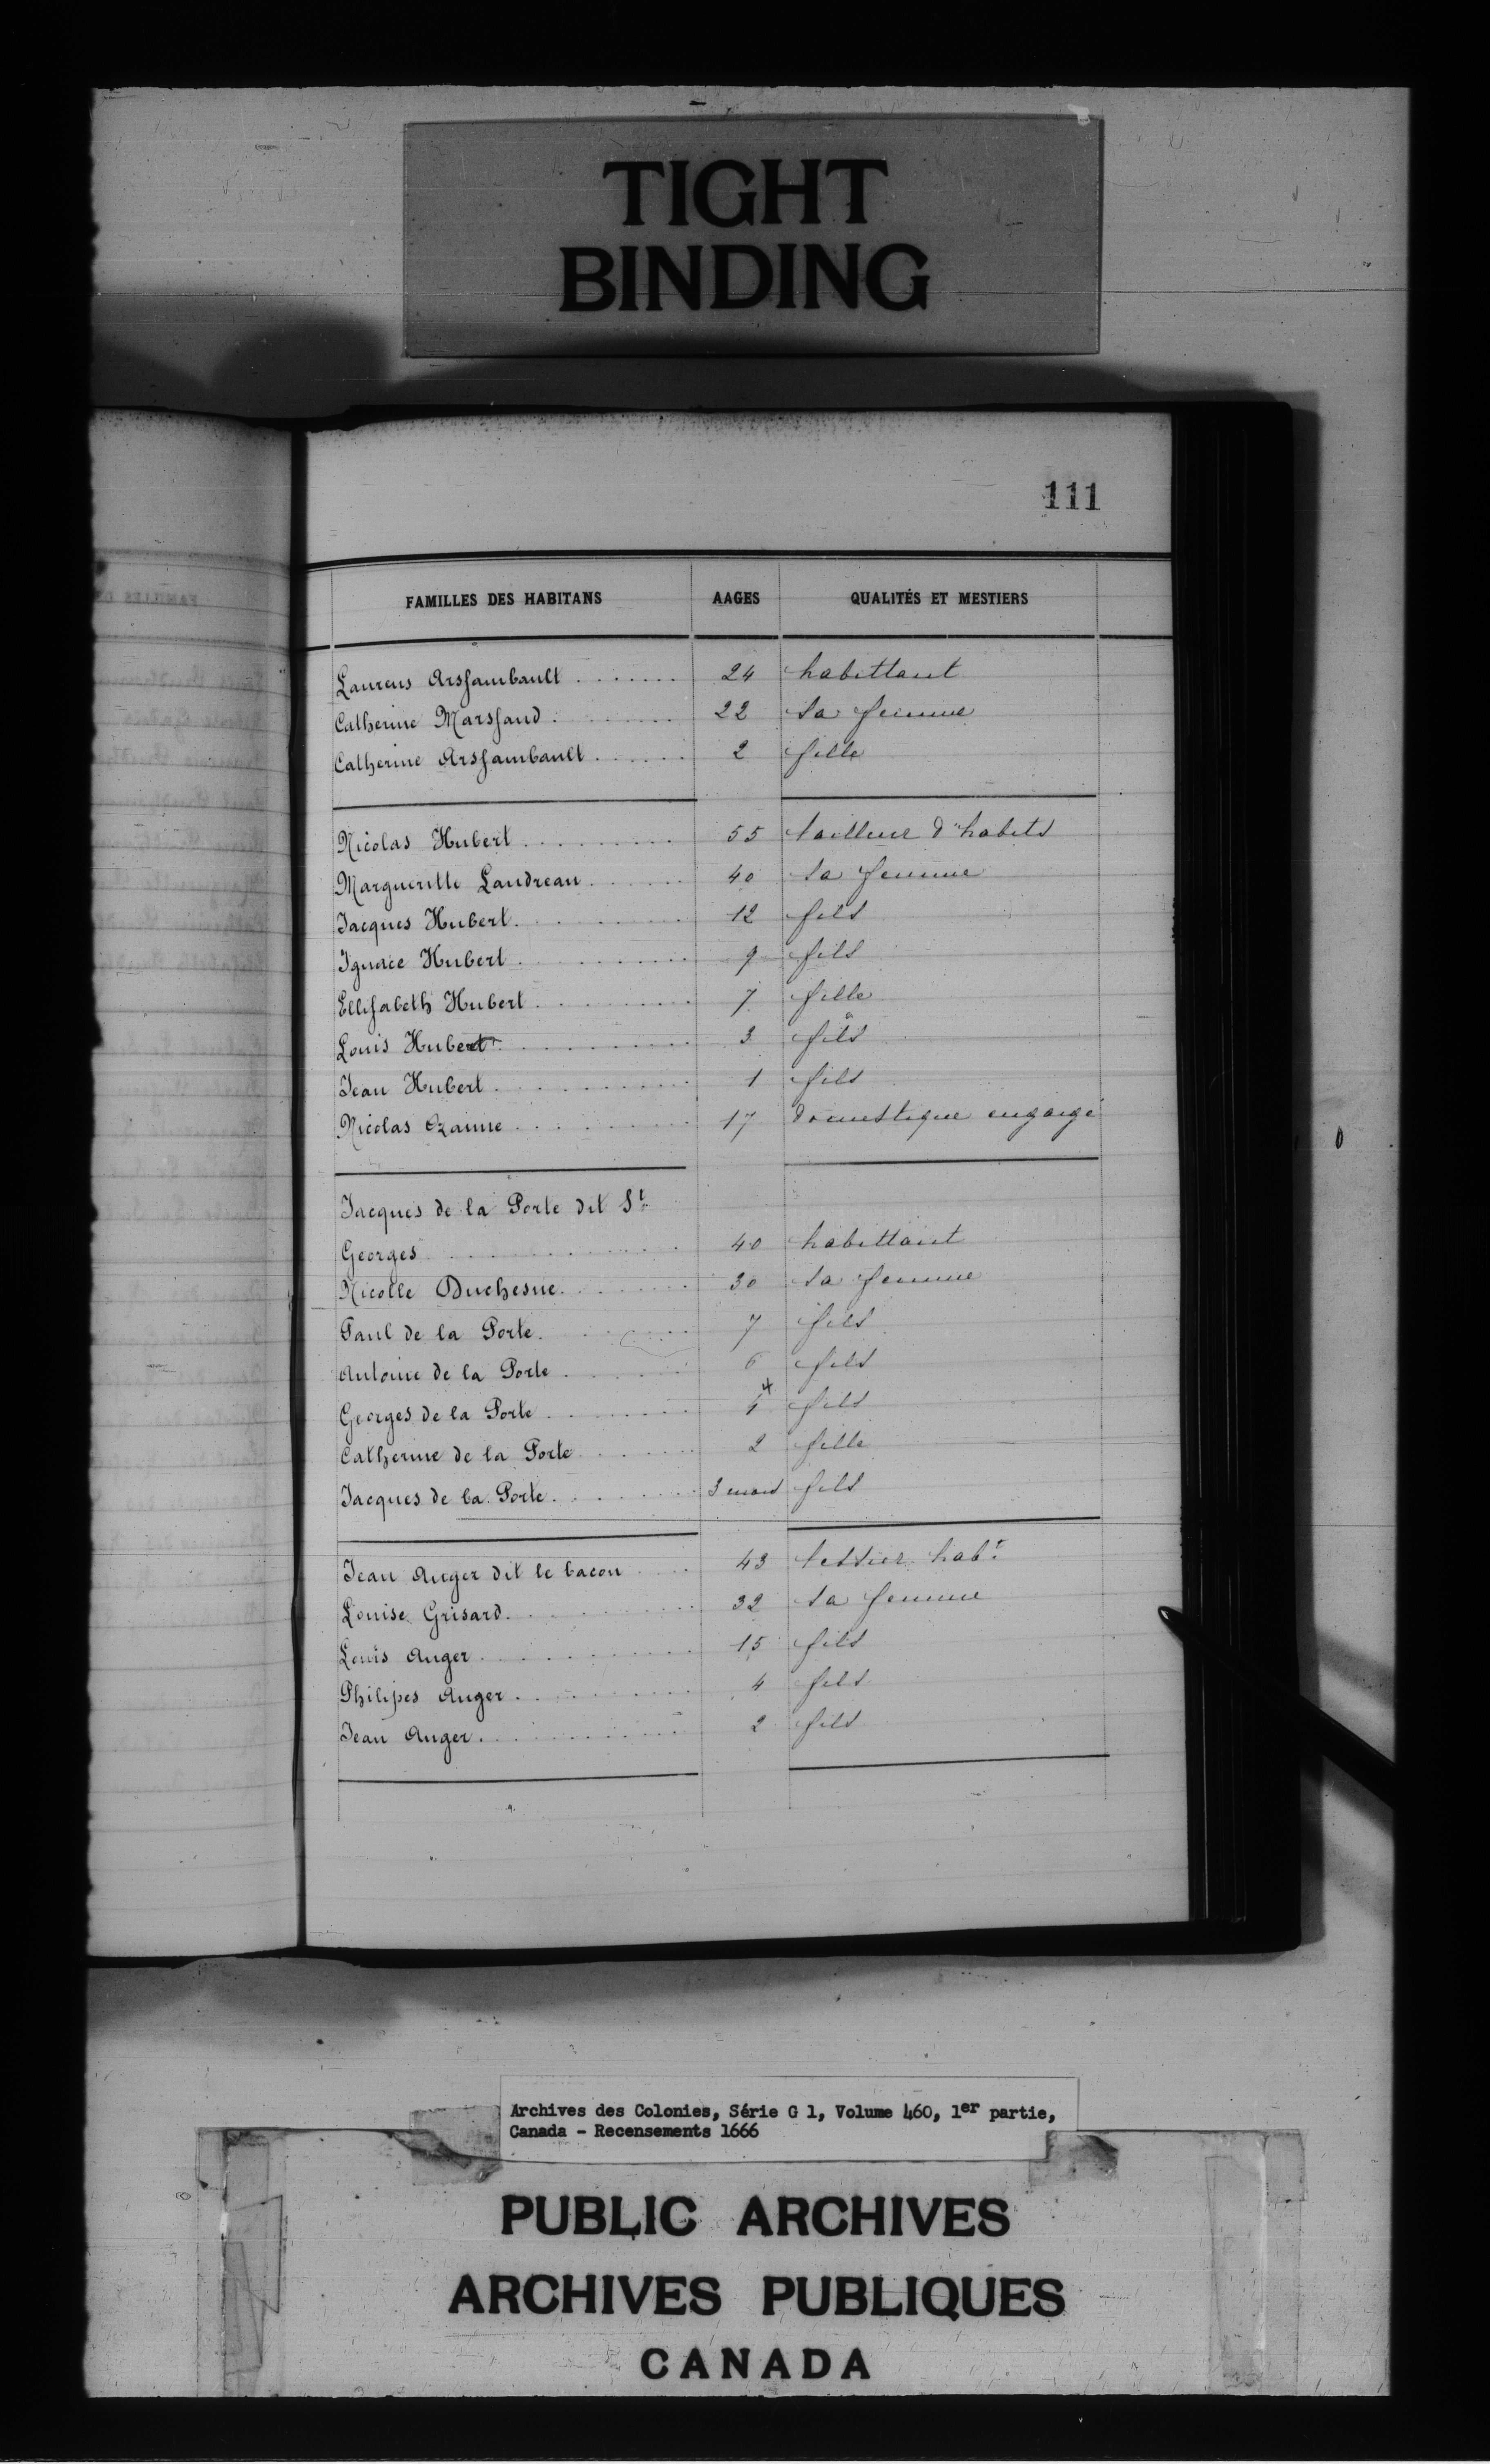 TIGHT
BINDING
111
FAMILLES DES HABITANS AAGES QUALITÉS ET MESTIERS
Laurens Arsfambault ........ 24 habittant
Catherine Marsfand ........ 22 sa femme
Catherine Arsfambault ...... 2 fille
Nicolas Hubert ......... 55 tailleur d'habits
Margueritte Landreau ...... 40 sa femme
Jacques Hubert .......... 12 fils
Ignace Hubert .......... 9 fils
Ellisabeth Hubert ......... 7 fille
Louis Hubert .......... 3 fils
Jean Hubert .......... 1 fils
Nicolas Ozanne .......... 17 domestique engaigé
Jacques de la Porte dit St
Georges ............. 40 habittant
Nicolle Duchesne ....... 30 sa femme
Paul de la Porte ........ 7 fils
Antoine de la Porte ....... 6 fils
Georges de la Porte ........ 4 fils
Catherine de la Porte ...... 2 fille
Jacques de la Porte ........ 3 mois fils
Jean Auger dit le bacon .... 43 tessier habt
Louise Grisard ......... 32 sa femme
Louis Auger ............ 15 fils
Philipes Auger .......... 4 fils
Jean Auger ............ 2 fils
Archives des Colonies, Série G 1, Volume 460, 1er partie,
Canada - Recensements 1666
PUBLIC ARCHIVES
ARCHIVES PUBLIQUES
CANADA